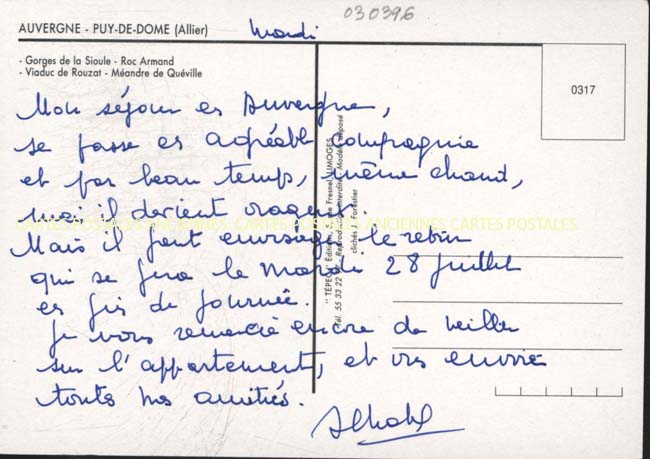 030396
AUVERGNE - PUY-DE-DOME (Allier)
Mardi
- Gorges de la Sioule - Roc Armand
- Viaduc de Rouzat - Méandre de Quéville
0317
Mon séjour en Auvergne,
se passe en agréable compagnie
et par beau temps, même chaud,
mais il devient orageux.
Mais il faut envisager le retour
qui se fera le Mardi 28 Juillet
en fin de journée.
Je vous remercie encore de veiller
sur l'appartement, et vous envoie
toutes mes amitiés.
"TÉPECI" Éditions, rue Fresnel, LIMOGES
Tél. 55 33 22 - Reproduction interdite - Modèle déposé
clichés J. Forestier
CARTES POSTALES ANCIENNES CARTES POSTALES